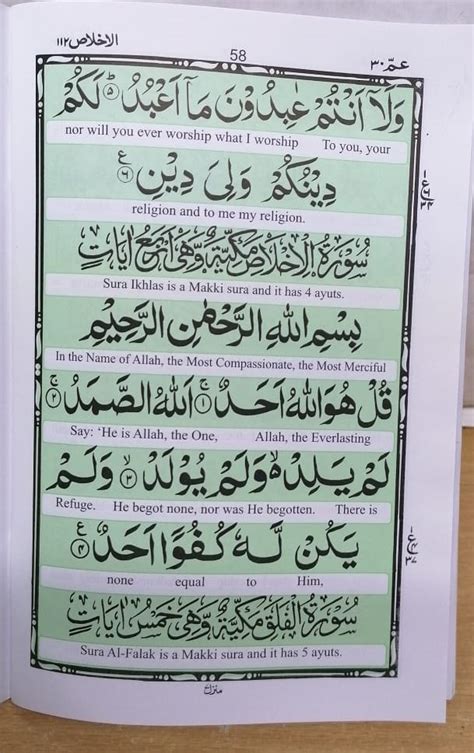 الاخلاص ١١٢
58
عمّ ٣٠
وَلَآ اَنْتُمْ عٰبِدُوْنَ مَآ اَعْبُدُ ۵ لَكُمْ
nor will you ever worship what I worship To you, your
دِيْنُكُمْ وَلِىَ دِيْنِ ۶
religion and to me my religion.
سُوْرَةُ الْاِخْلَاصِ مَكِّيَّةٌ وَّهِىَ اَرْبَعُ اٰيَاتٍ
Sura Ikhlas is a Makki sura and it has 4 ayuts.
بِسْمِ اللهِ الرَّحْمٰنِ الرَّحِيْمِ
In the Name of Allah, the Most Compassionate, the Most Merciful
قُلْ هُوَ اللهُ اَحَدٌ ۱ اَللهُ الصَّمَدُ ۲
Say: ‘He is Allah, the One, Allah, the Everlasting
لَمْ يَلِدْ وَلَمْ يُوْلَدْ ۳ وَلَمْ
Refuge. He begot none, nor was He begotten. There is
يَكُنْ لَّهٗ كُفُوًا اَحَدٌ ۴
none equal to Him,
سُوْرَةُ الْفَلَقِ مَكِّيَّةٌ وَّهِىَ خَمْسُ اٰيَاتٍ
Sura Al-Falak is a Makki sura and it has 5 ayuts.
منزل